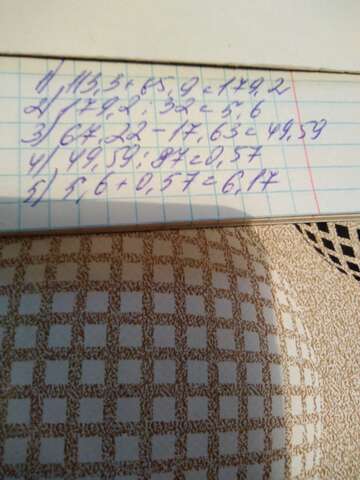 1) 113,3+65,9=179,2
2) 179,2:32=5,6
3) 67,22-17,63=49,59
4) 49,59:87=0,57
5) 5,6+0,57=6,17